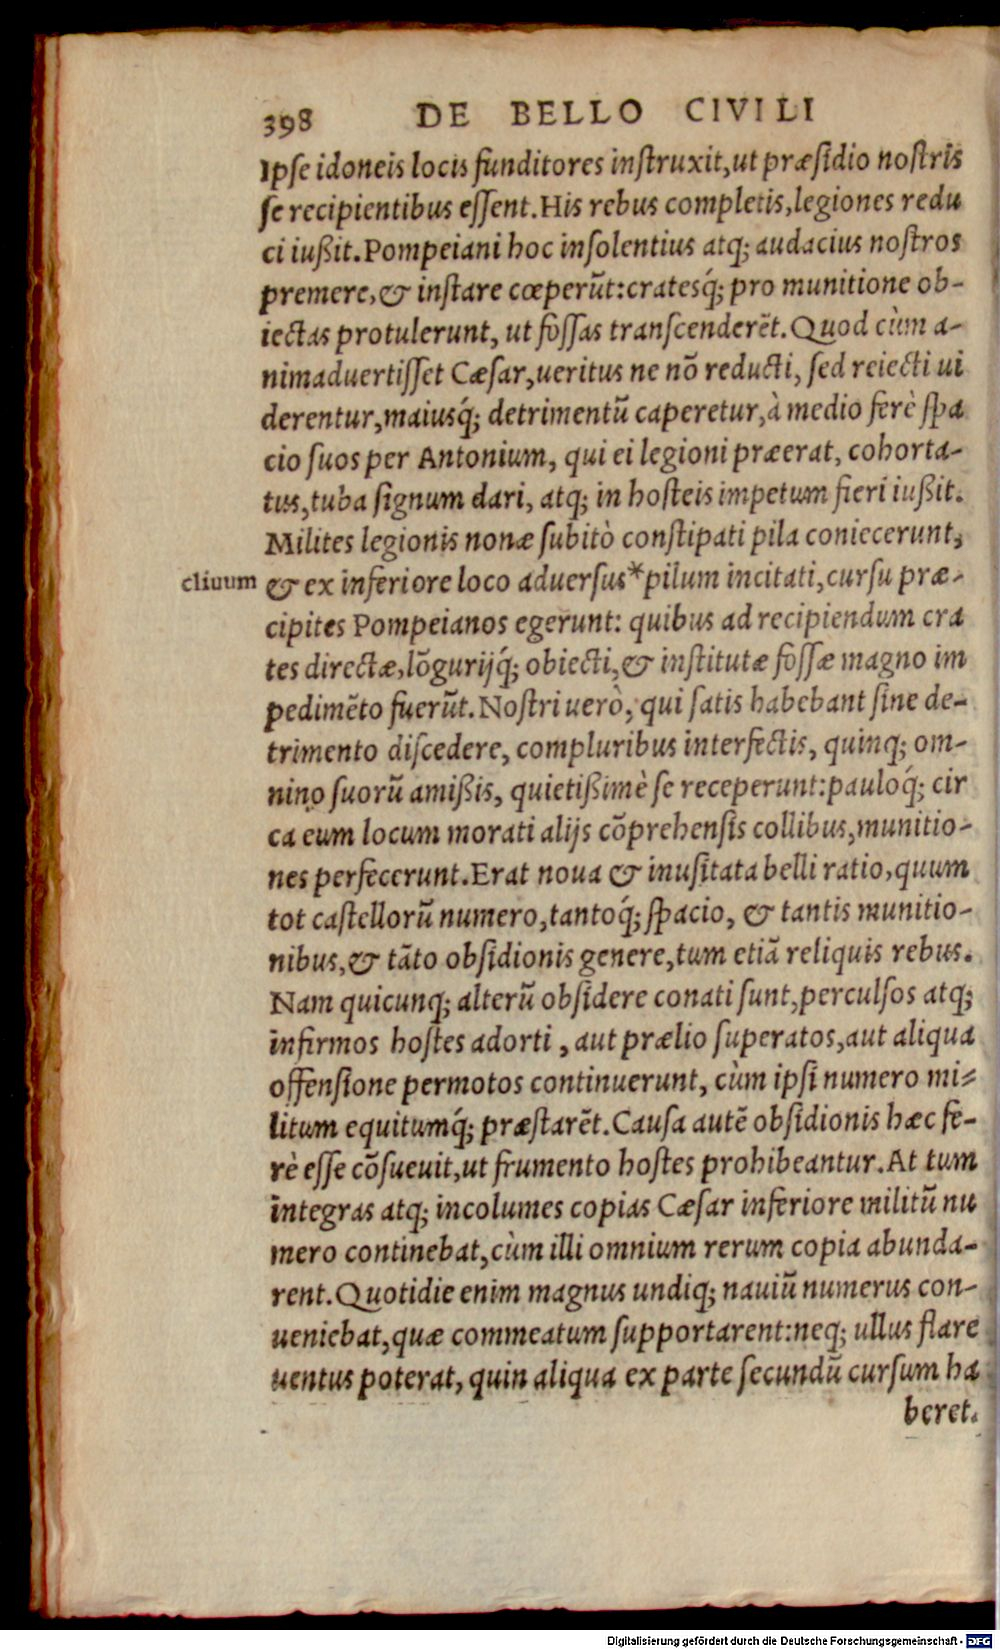 398 DE BELLO CIVILI
Ipſe idoneis locis funditores inſtruxit, ut præſidio noſtris
ſe recipientibus eſſent. His rebus completis, legiones redu
ci iußit. Pompeiani hoc inſolentius atq; audacius noſtros
premere, & inſtare cœperūt: cratesq́; pro munitione ob-
iectas protulerunt, ut foſſas tranſcenderēt. Quod cùm a-
nimaduertiſſet Cæſar, ueritus ne nō reducti, ſed reiecti ui
derentur, maiusq́; detrimentū caperetur, à medio ferè ſpa
cio ſuos per Antonium, qui ei legioni præerat, cohorta-
tus, tuba ſignum dari, atq; in hoſteis impetum fieri iußit.
Milites legionis nonæ ſubitò conſtipati pila coniecerunt,
cliuum & ex inferiore loco aduerſus*pilum incitati, curſu præ-
cipites Pompeianos egerunt: quibus ad recipiendum cra
tes directæ, lōgurijq́; obiecti, & inſtitutæ foſſæ magno im
pedimēto fuerūt. Noſtri uerò, qui ſatis habebant ſine de-
trimento diſcedere, compluribus interfectis, quinq; om-
nino ſuorū amißis, quietißimè ſe receperunt: pauloq́; cir
ca eum locum morati alijs cōprehenſis collibus, munitio-
nes perfecerunt. Erat noua & inuſitata belli ratio, quum
tot caſtellorū numero, tantoq́; ſpacio, & tantis munitio-
nibus, & tāto obſidionis genere, tum etiā reliquis rebus.
Nam quicunq; alterū obſidere conati ſunt, perculſos atq;
infirmos hoſtes adorti, aut prælio ſuperatos, aut aliqua
offenſione permotos continuerunt, cùm ipſi numero mi-
litum equitumq́; præſtarēt. Cauſa autē obſidionis hæc fe-
rè eſſe cōſueuit, ut frumento hoſtes prohibeantur. At tum
integras atq; incolumes copias Cæſar inferiore militū nu
mero continebat, cùm illi omnium rerum copia abunda-
rent. Quotidie enim magnus undiq; nauiū numerus con-
ueniebat, quæ commeatum ſupportarent: neq; ullus flare
uentus poterat, quin aliqua ex parte ſecundū curſum ha
beret.
Digitalisierung gefördert durch die Deutsche Forschungsgemeinschaft - DFG